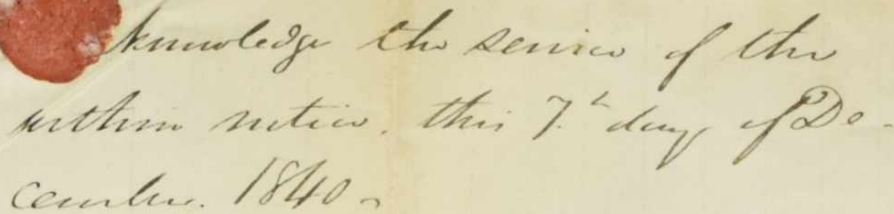 knowledge the service of the
within notice. this 7.th day of De-
cember. 1840 -